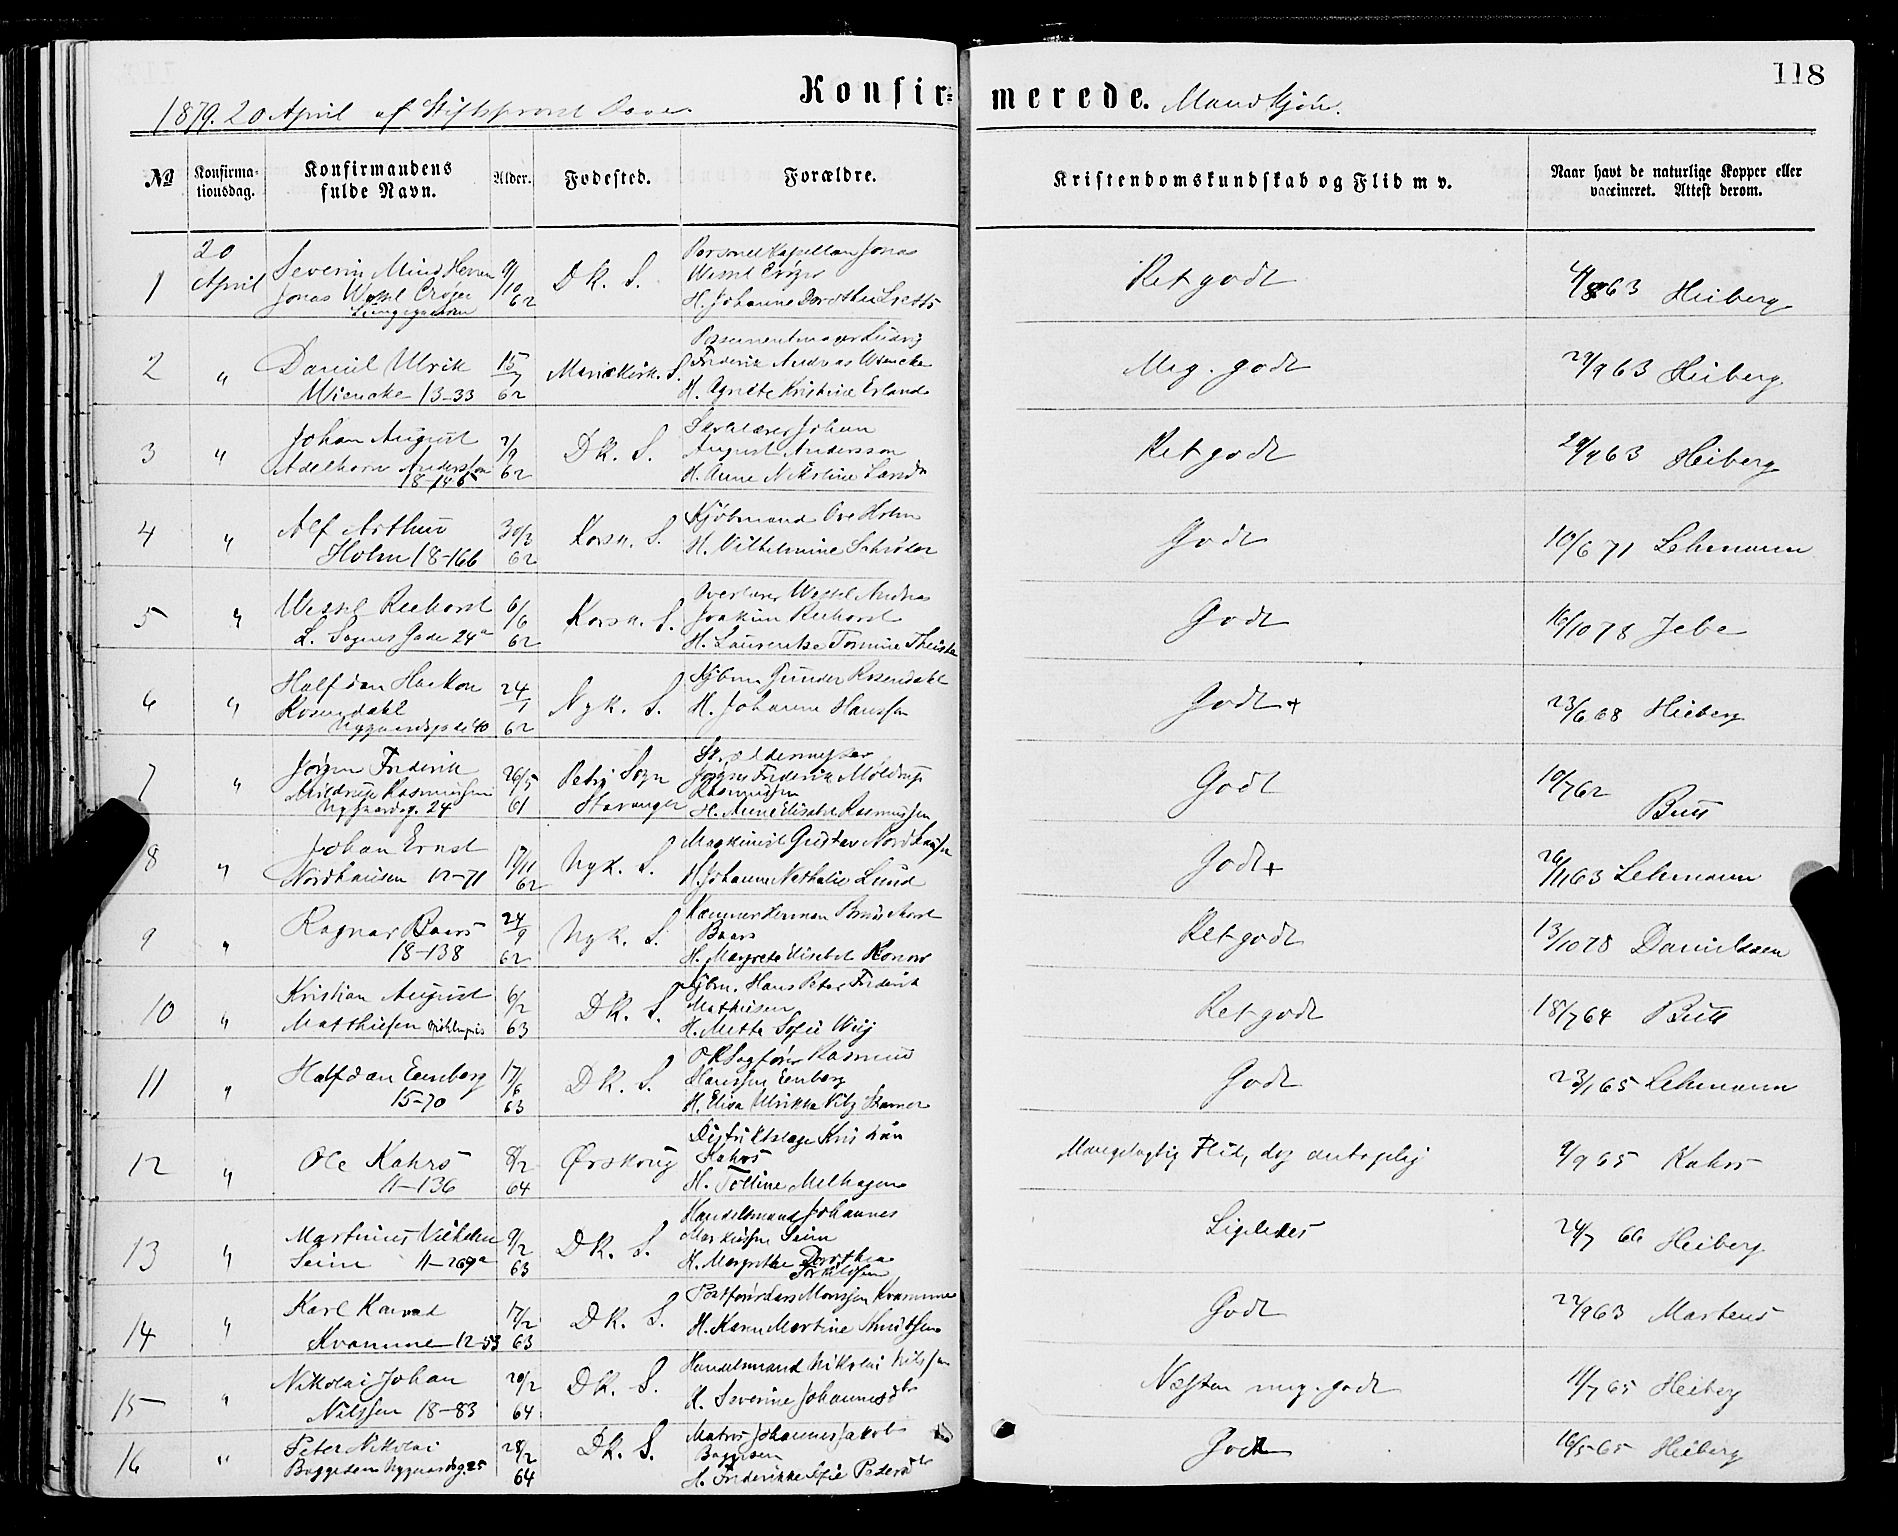 118
Konfirmerede. Mandkjön.
1879. 20 April af Stiftsprovst
№ Konfirmationsdag. Konfirmandens fulde Navn. Alder. Fødested. Forældre. Kristendomskundskab og Flid m v. Naar havt de naturlige Kopper eller vaccineret. Attest derom.
1 20 April Severin Jonas Wessel Crøger 9/10 62 D K. S. Personel Kapellan Jonas Wessel Crøger H. Johanne Dorothea Ret godt 63 Heiberg
2 " Daniel Ulrik Wiencke 13-33 15/7 62 Mariekirk. S. Ludvig Frederik Andreas Wiencke H. Agnete Kristine Meg. godt 29/9 63 Heiberg
3 " Johan August Andersson 18-146 7/9 62 D K. S. Johan August Andersson H. Anne Ret godt 29/9 63 Heiberg
4 " Alf Arthur Holm 18-166 30/3 62 Korsk. S. Kjöbmand Ove Holm H. Vilhelmine Schrøder Godt 10/6 71 Lehmann
5 " Wessel Reehorst L. Sognes Gade 24a 6/6 62 Korsk. S. Overlærer Wessel Andreas Joakim Reehorst H. Godt 16/10 78 Jebe
6 " Halfdan Haakon Rosendahl Nygaardsgade 40 24/1 62 Nyk. S. Kjbm Gunder Rosendahl H. Johanne Hanssen Godt + 23/6 68 Heiberg
7 " Jörgen Frederik Möldrup Rasmussen Nygaardsg. 24 26/5 61 Petri Sogn Stavanger Jörgen Frederik Möldrup Rasmussen H. Anne Elisabet Rasmussen Godt 10/7 62 Bull
8 " Johan Ernst Nordhausen 12-71 17/11 62 Nyk. S. Maskinist Gustav Nordhausen H. Johanne Nathalie Lund Godt + 26/11 63 Lehmann
9 " Ragnar Baars 18-138 24/9 62 Nyk. S. Kæmner Herman Baars H. Margrete Elisabet Konow Ret godt 13/10 78 Danielssen
10 " Kristian August Matthiesen 6/2 63 D K. S. Kjbm. Hans Peter Frederik Mathiesen H. Mette Sofie Wiig Ret godt 18/7 64 Bull
11 " Halfdan Eenberg 15-70 17/6 63 D K. S. O R Sagförer Rasmus Hanssen Eenberg H. Elisa Ulrikke Godt 23/1 65 Lehmann
12 " Ole Kahrs 11-136 8/2 64 Ørskoug Distriktslæge Kristian Kahrs H. Melhagen Mangelagtig Flid, dog antagelig 9/9 65 Kahrs
13 " Martinus Vilhelm Seim 11-269a 9/2 63 D K. S. Handelsmand Johannes Seim H. Margrethe Dorothea Torkildsen Ligeledes 24/7 66 Heiberg
14 " Karl Konrad Kvamme 12-53 17/2 63 D K. S. Lars Monsen Kvamme H. Karen Martine Knudtsen Godt 22/9 63 Martens
15 " Nikolai Johan Nilssen 18-83 20/2 64 D K. S. Handelsmand Nikolai Nilssen H. Severine Johannesdtr Næsten meg. godt 11/7 65 Heiberg
16 " Peter Nikolai Baggesen Nygaardsg. 25 28/2 64 D K. S. Matros Johannes Jakob Baggesen H. Frederikke Sofie Pedersdtr Godt 16/5 65 Heiberg